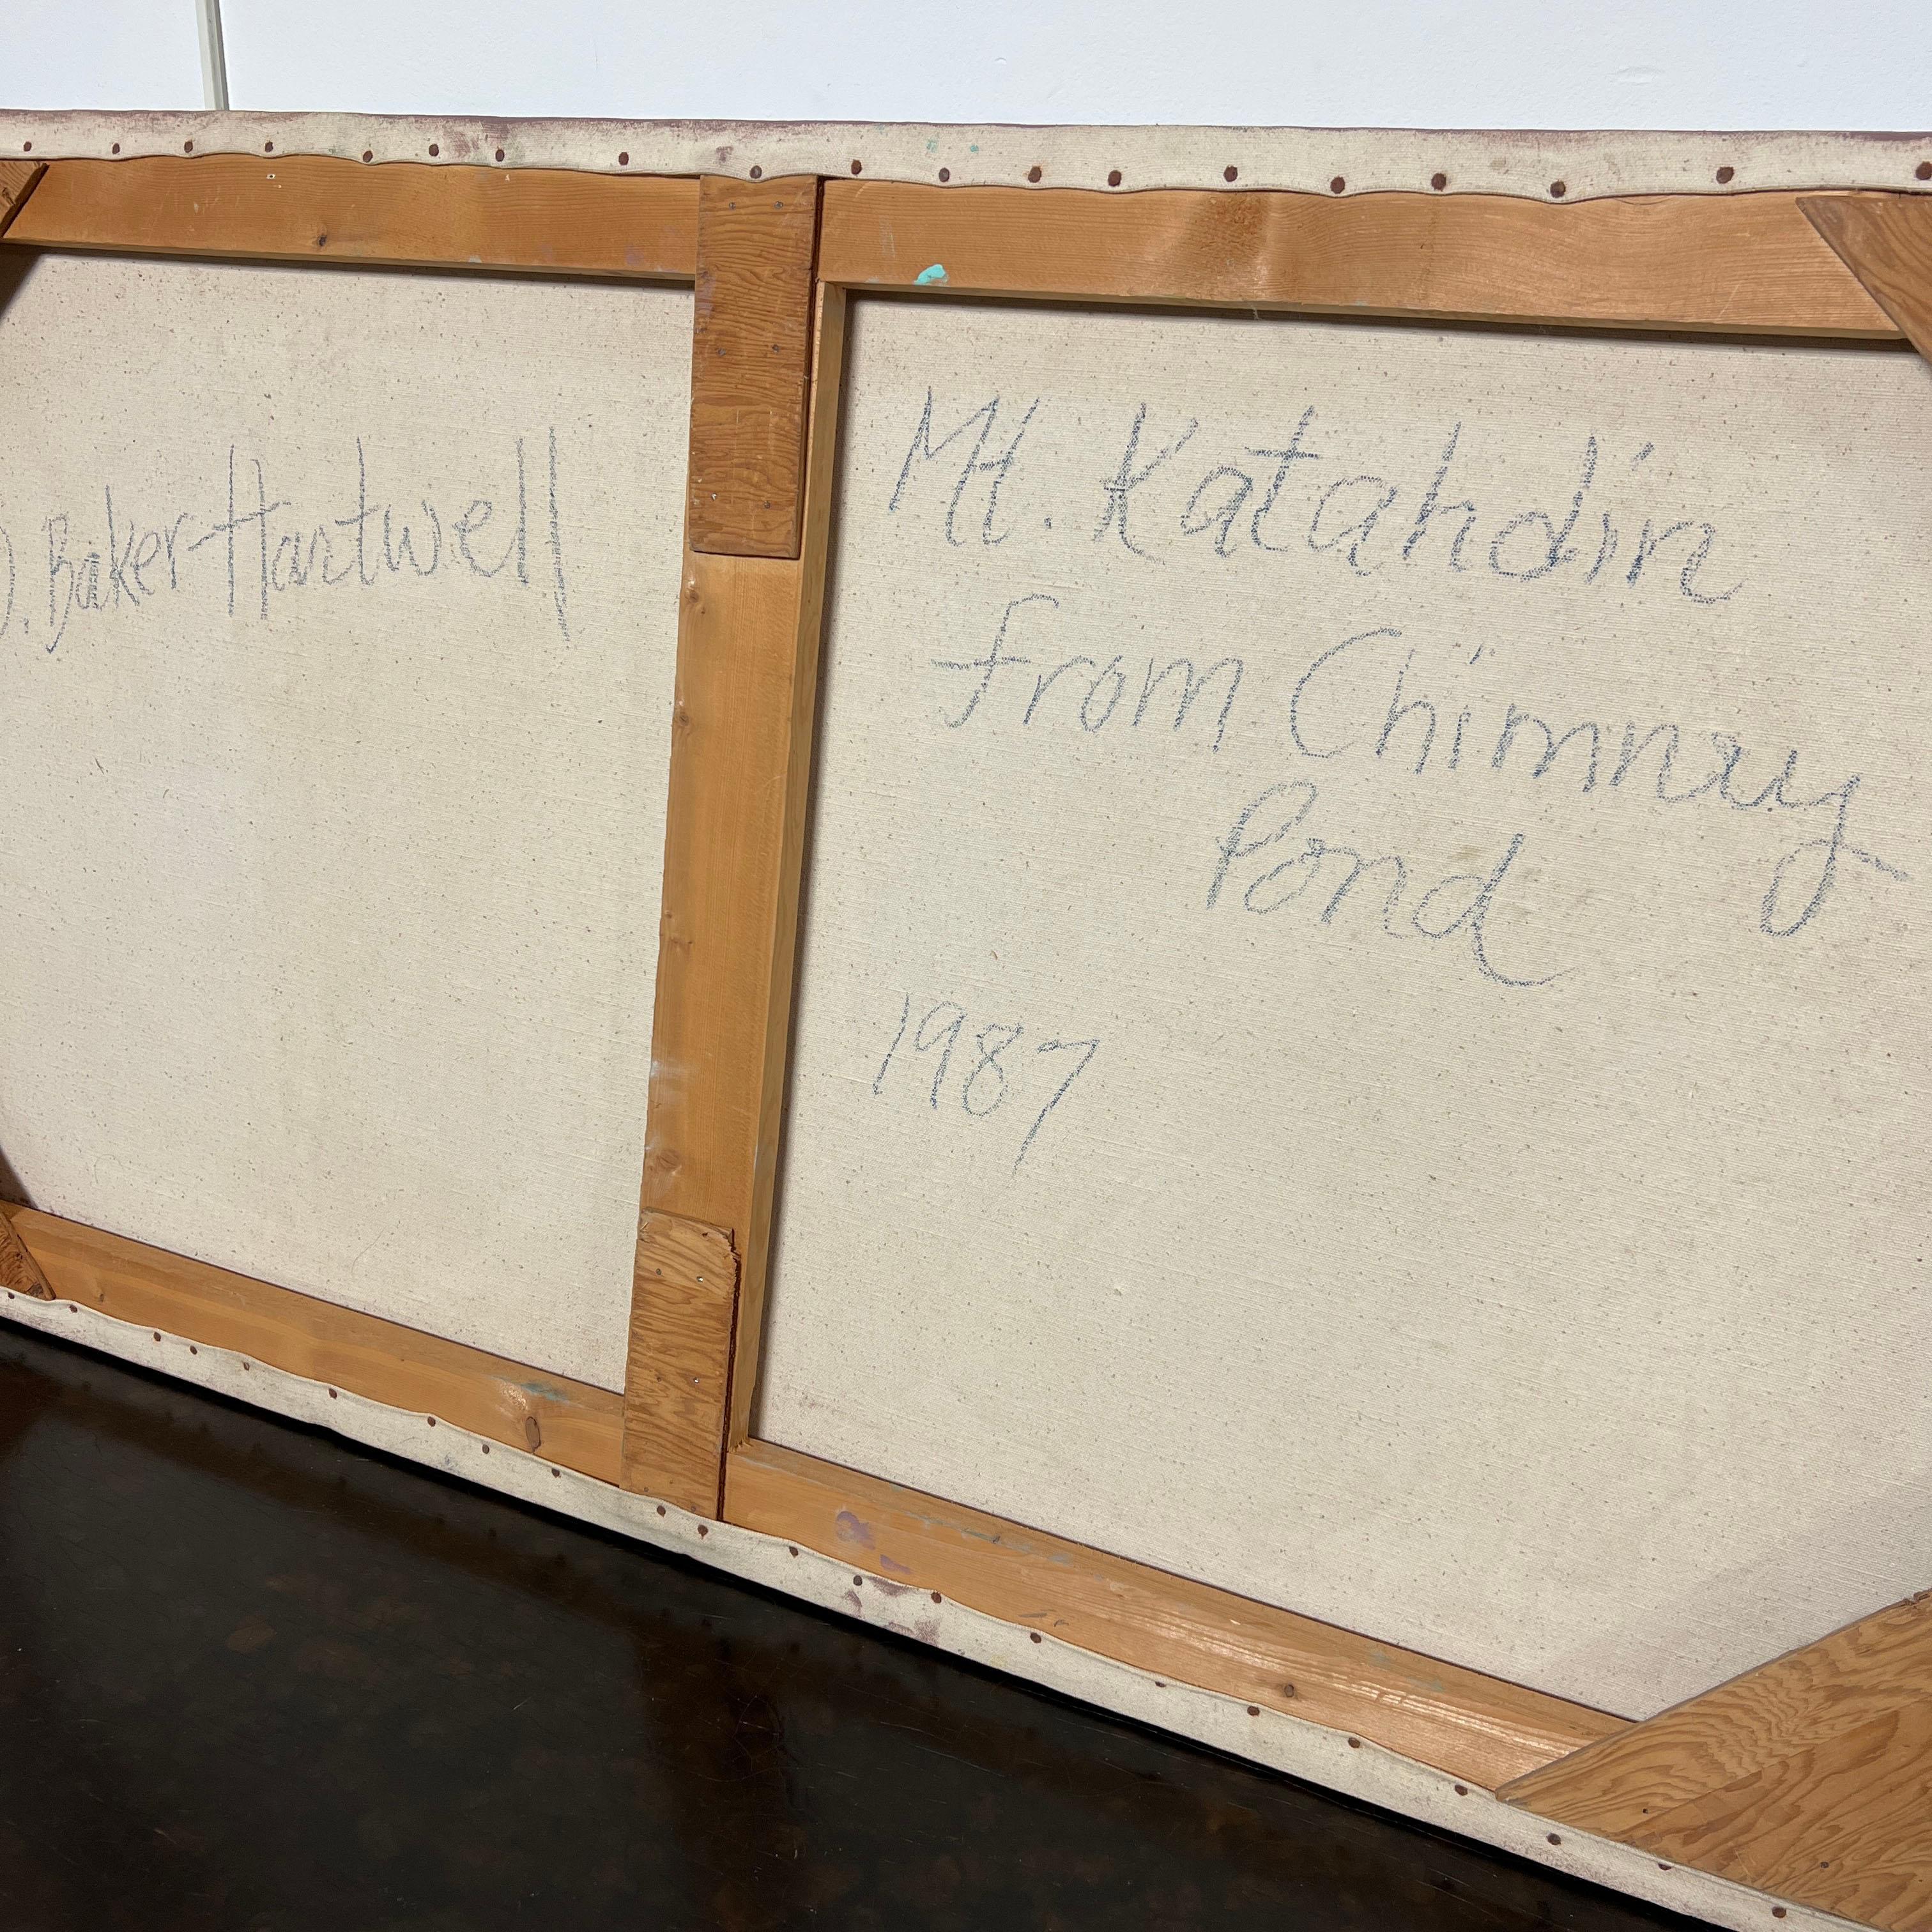 D. Baker-Hartwell
Mt. Katahdin
From Chimney
Pond
1987